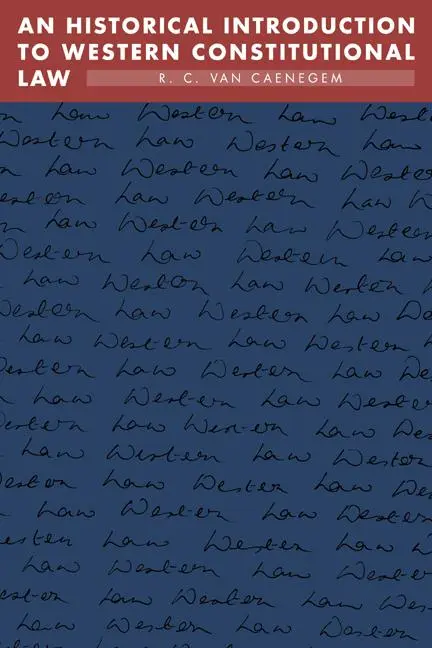 AN HISTORICAL INTRODUCTION
TO WESTERN CONSTITUTIONAL
LAW R. C. VAN CAENEGEM
Law Western Law West
Western Law Western Law
Law Western Law Western
estern Law Western Law W
n Law Western Law Western
Western Law Western Law
Law Western Law Western W
Western Law Western Law We
Law Western Law Western
estern Law Western Law We
Law Western Law Western
estern Law Western Law Wes
Law Western Law Western
estern Law Western Law Wes
Law Western Law Western
estern Law Western Law We
Law Western Law Western
estern Law Western Law We
Law Western Law Western